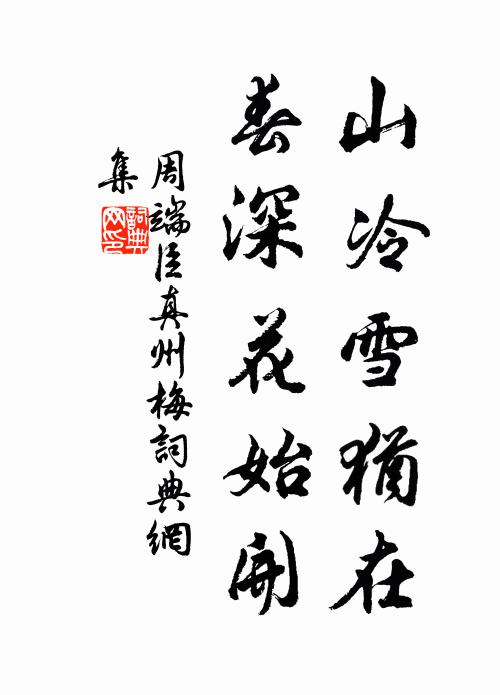 山冷雪猶在
春深花始開
周端臣真州梅詞典網
集
詞典網印